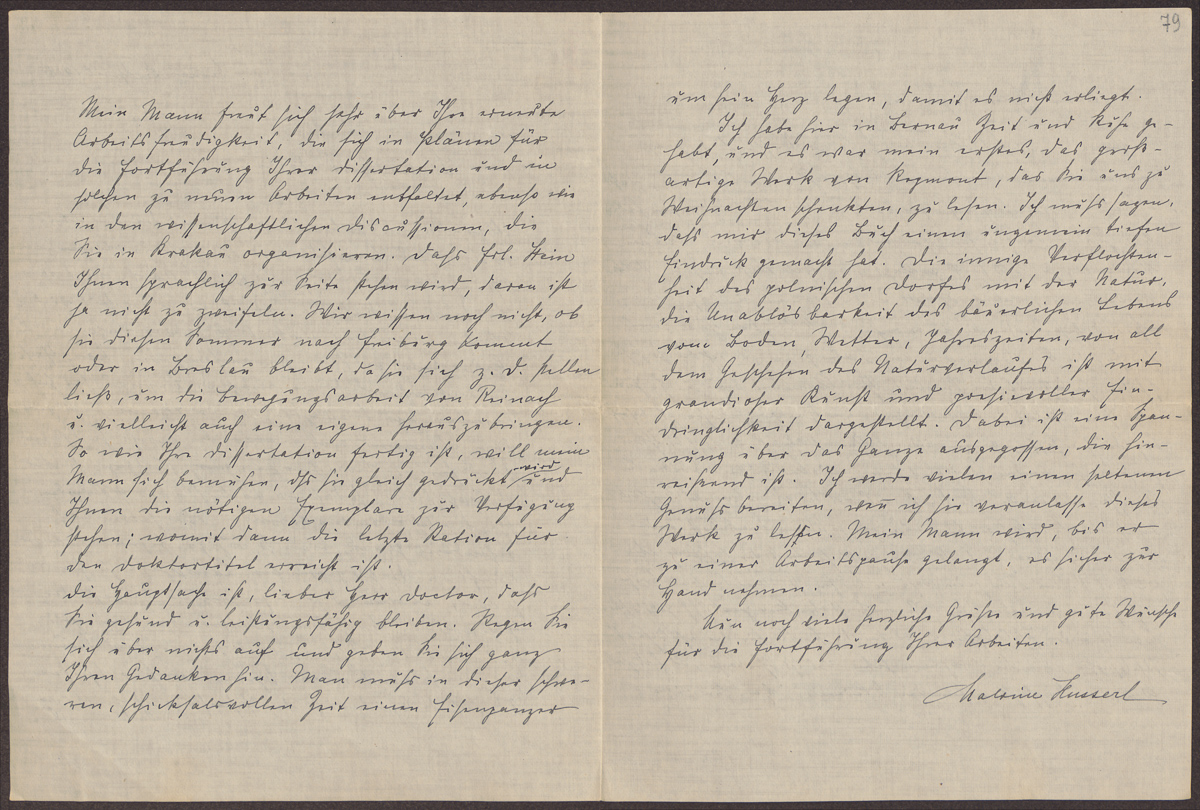 Mein Mann freut sich sehr über Ihre erneute
Arbeitsfreudigkeit, die sich in Plänen für
die Fortführung Ihrer Dissertation und in
solchen zu neuen Arbeiten entfaltet, ebenso wie
in den wissenschaftlichen Discussionen, die
Sie in Krakau organisieren. Dass Frl. Stein
Ihnen sprachlich zur Seite stehen wird, daran ist
ja nicht zu zweifeln. Wir wissen noch nicht, ob
sie diesen Sommer nach Freiburg kommt
oder in Breslau bleibt, da sie sich z. D. stellen
ließ, um die Bewegungsarbeit von Reinach
u. vielleicht auch eine eigene herauszubringen.
So wie Ihre Dissertation fertig ist, will mein
Mann sich bemühen, dss sie gleich gedruckt wird und
Ihnen die nötigen Exemplare zur Verfügung
stehen; womit dann die letzte Ration für
den Doktortitel erreicht ist.
Die Hauptsache ist, lieber Herr Doctor, dass
Sie gesund u. leistungsfähig bleiben. Regen Sie
sich über nichts auf und geben Sie sich ganz
Ihren Gedanken hin. Man muss in dieser schwe-
ren, schicksalsvollen Zeit einen Eisenpanzer
79
um sein Herz legen, damit es nicht erliegt.
Ich habe hier in Bernau Zeit und Ruhe ge-
habt, und es war mein erstes, das groß-
artige Werk von Reymont, das Sie uns zu
Weihnachten schenkten, zu lesen. Ich muss sagen,
dass mir dieses Buch einen ungemein tiefen
Eindruck gemacht hat. Die innige Verflochten-
heit des polnischen Dorfes mit der Natur,
die Unablösbarkeit des bäuerlichen Lebens
vom Boden, Wetter, Jahreszeiten, von all
dem Geschehen des Naturverlaufes ist mit
grandioser Kunst und poesievoller Ein-
dringlichkeit dargestellt. Dabei ist eine Span-
nung über das Ganze ausgegossen, die hin-
reißend ist. Ich werde vielen einen seltenen
Genuss bereiten, wenn ich sie veranlasse dieses
Werk zu lesen. Mein Mann wird, bis er
zu einer Arbeitspause gelangt, es sicher zur
Hand nehmen.
Nun noch viele herzliche Grüsse und gute Wünsche
für die Fortführung Ihrer Arbeiten.
Malvine Husserl